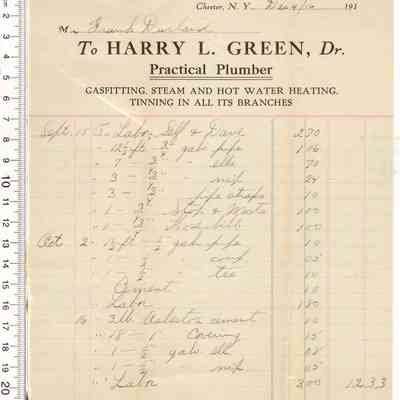 Chester, N. Y. Dec 4/16 191
Mr Frank Durland
To HARRY L. GREEN, Dr.
Practical Plumber
GASFITTING, STEAM AND HOT WATER HEATING,
TINNING IN ALL ITS BRANCHES
Sept. 15 To Labor Self & Dave 2 70
" 12½ ft ¾" galv pipe 1 16
" 7 - ¾" " ells 70
" 3 - " nip 24
" 3 - " pipe straps 10
" 1 - ¾" Stop & Waste 1 00
" 1 - 1 00
Oct 2 - ft - ½ galv pipe 10
" 1 - ½ " coup 05
" ½ " tee 10
Cement 10
Labor 1 80
" 16 3 lb. Asbestos cement 10
" 18 - 1" Covering 15
" 1 - ½ galv ell 08
" 1 - ½ " nip 05
" Labor 3 00 12 33